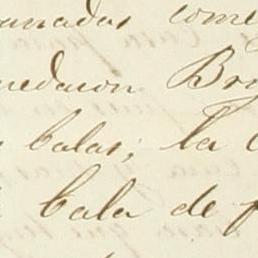 anadas come
uedaron Br
balas; la
bala de